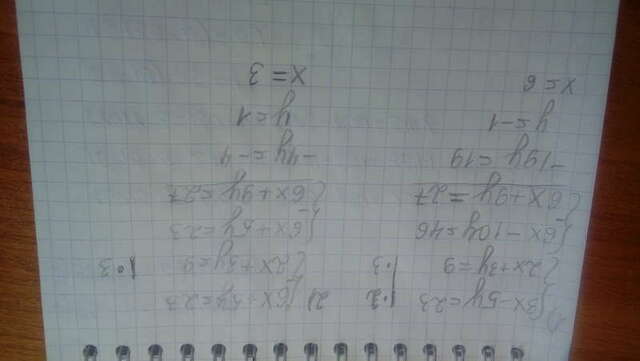 1) { 3x-5y=23 |·2
2x+3y=9 |·3
{ 6x-10y=46
- 6x+9y=27
-19y=19
y=-1
x=6
2) { 6x+5y=23
2x+3y=9 |·3
{ 6x+5y=23
- 6x+9y=27
-4y=-4
y=1
x=3